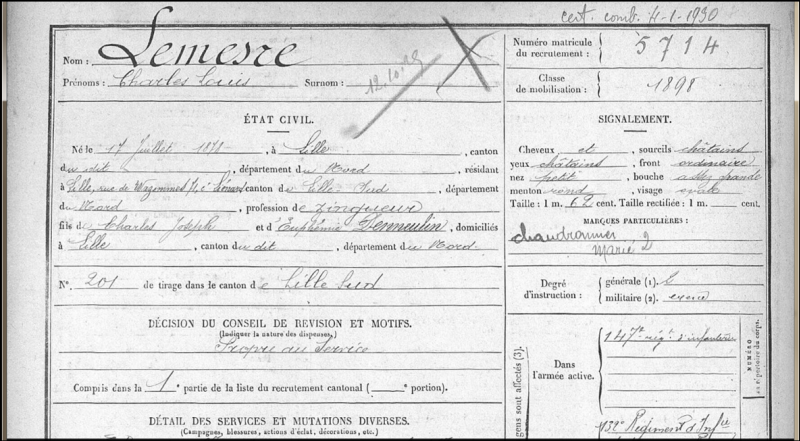 cert. comb. 4-1-1930
Nom : Lemesre
Prénoms : Charles Louis Surnom :
12.10.15
Numéro matricule du recrutement : 5714
Classe de mobilisation : 1898
ÉTAT CIVIL.
Né le 17 Juillet 1878, à Lille, canton
du dit, département du Nord, résidant
à Lille, rue de Wazemmes 71, canton de Lille-Sud, département
du Nord, profession de zingueur
fils de Charles Joseph et d'Euphémie Lennulin, domiciliés
à Lille, canton du dit, département du Nord.
N° 201 de tirage dans le canton de Lille Sud
DÉCISION DU CONSEIL DE REVISION ET MOTIFS.
(Indiquer la nature des dispenses.)
Propre au Service
Compris dans la 1e partie de la liste du recrutement cantonal (e portion).
DÉTAIL DES SERVICES ET MUTATIONS DIVERSES.
(Campagnes, blessures, actions d'éclat, décorations, etc.)
SIGNALEMENT.
Cheveux et sourcils châtains
yeux châtains, front ordinaire
nez petit, bouche assez grande
menton rond, visage ovale
Taille : 1 m. 62 cent. Taille rectifiée : 1 m. cent.
MARQUES PARTICULIÈRES :
chaudronnier
Marié 2
Degré d'instruction :
générale (1).
militaire (2). exercé
gens sont affectés (3).
Dans l'armée active.
147e régt d'infanterie
132e Régiment d'Infie
NUMÉRO
au répertoire du corps.